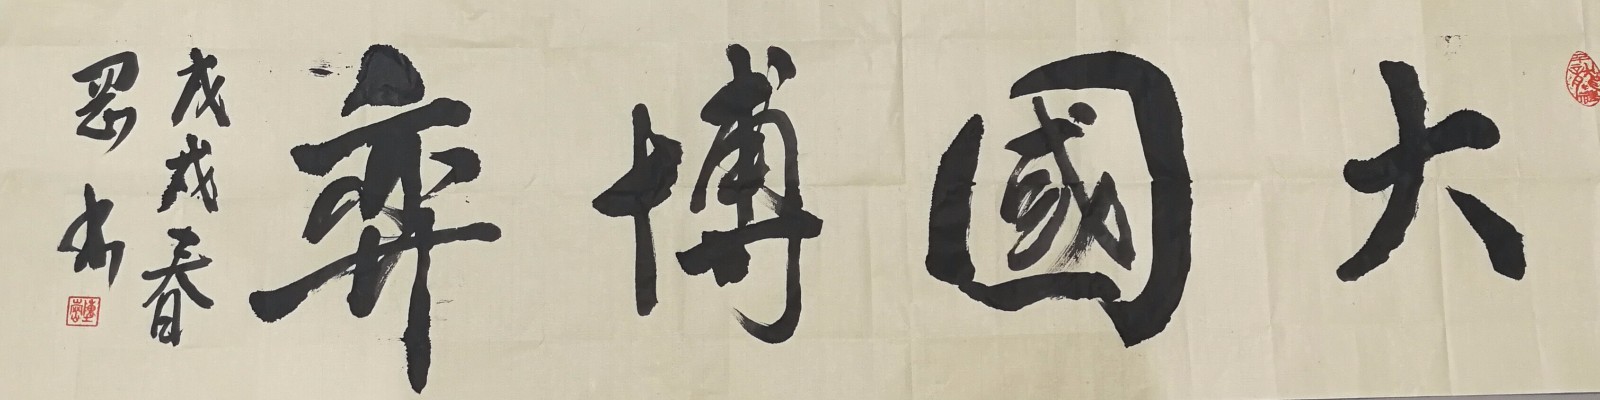 大國博弈
戊戌春